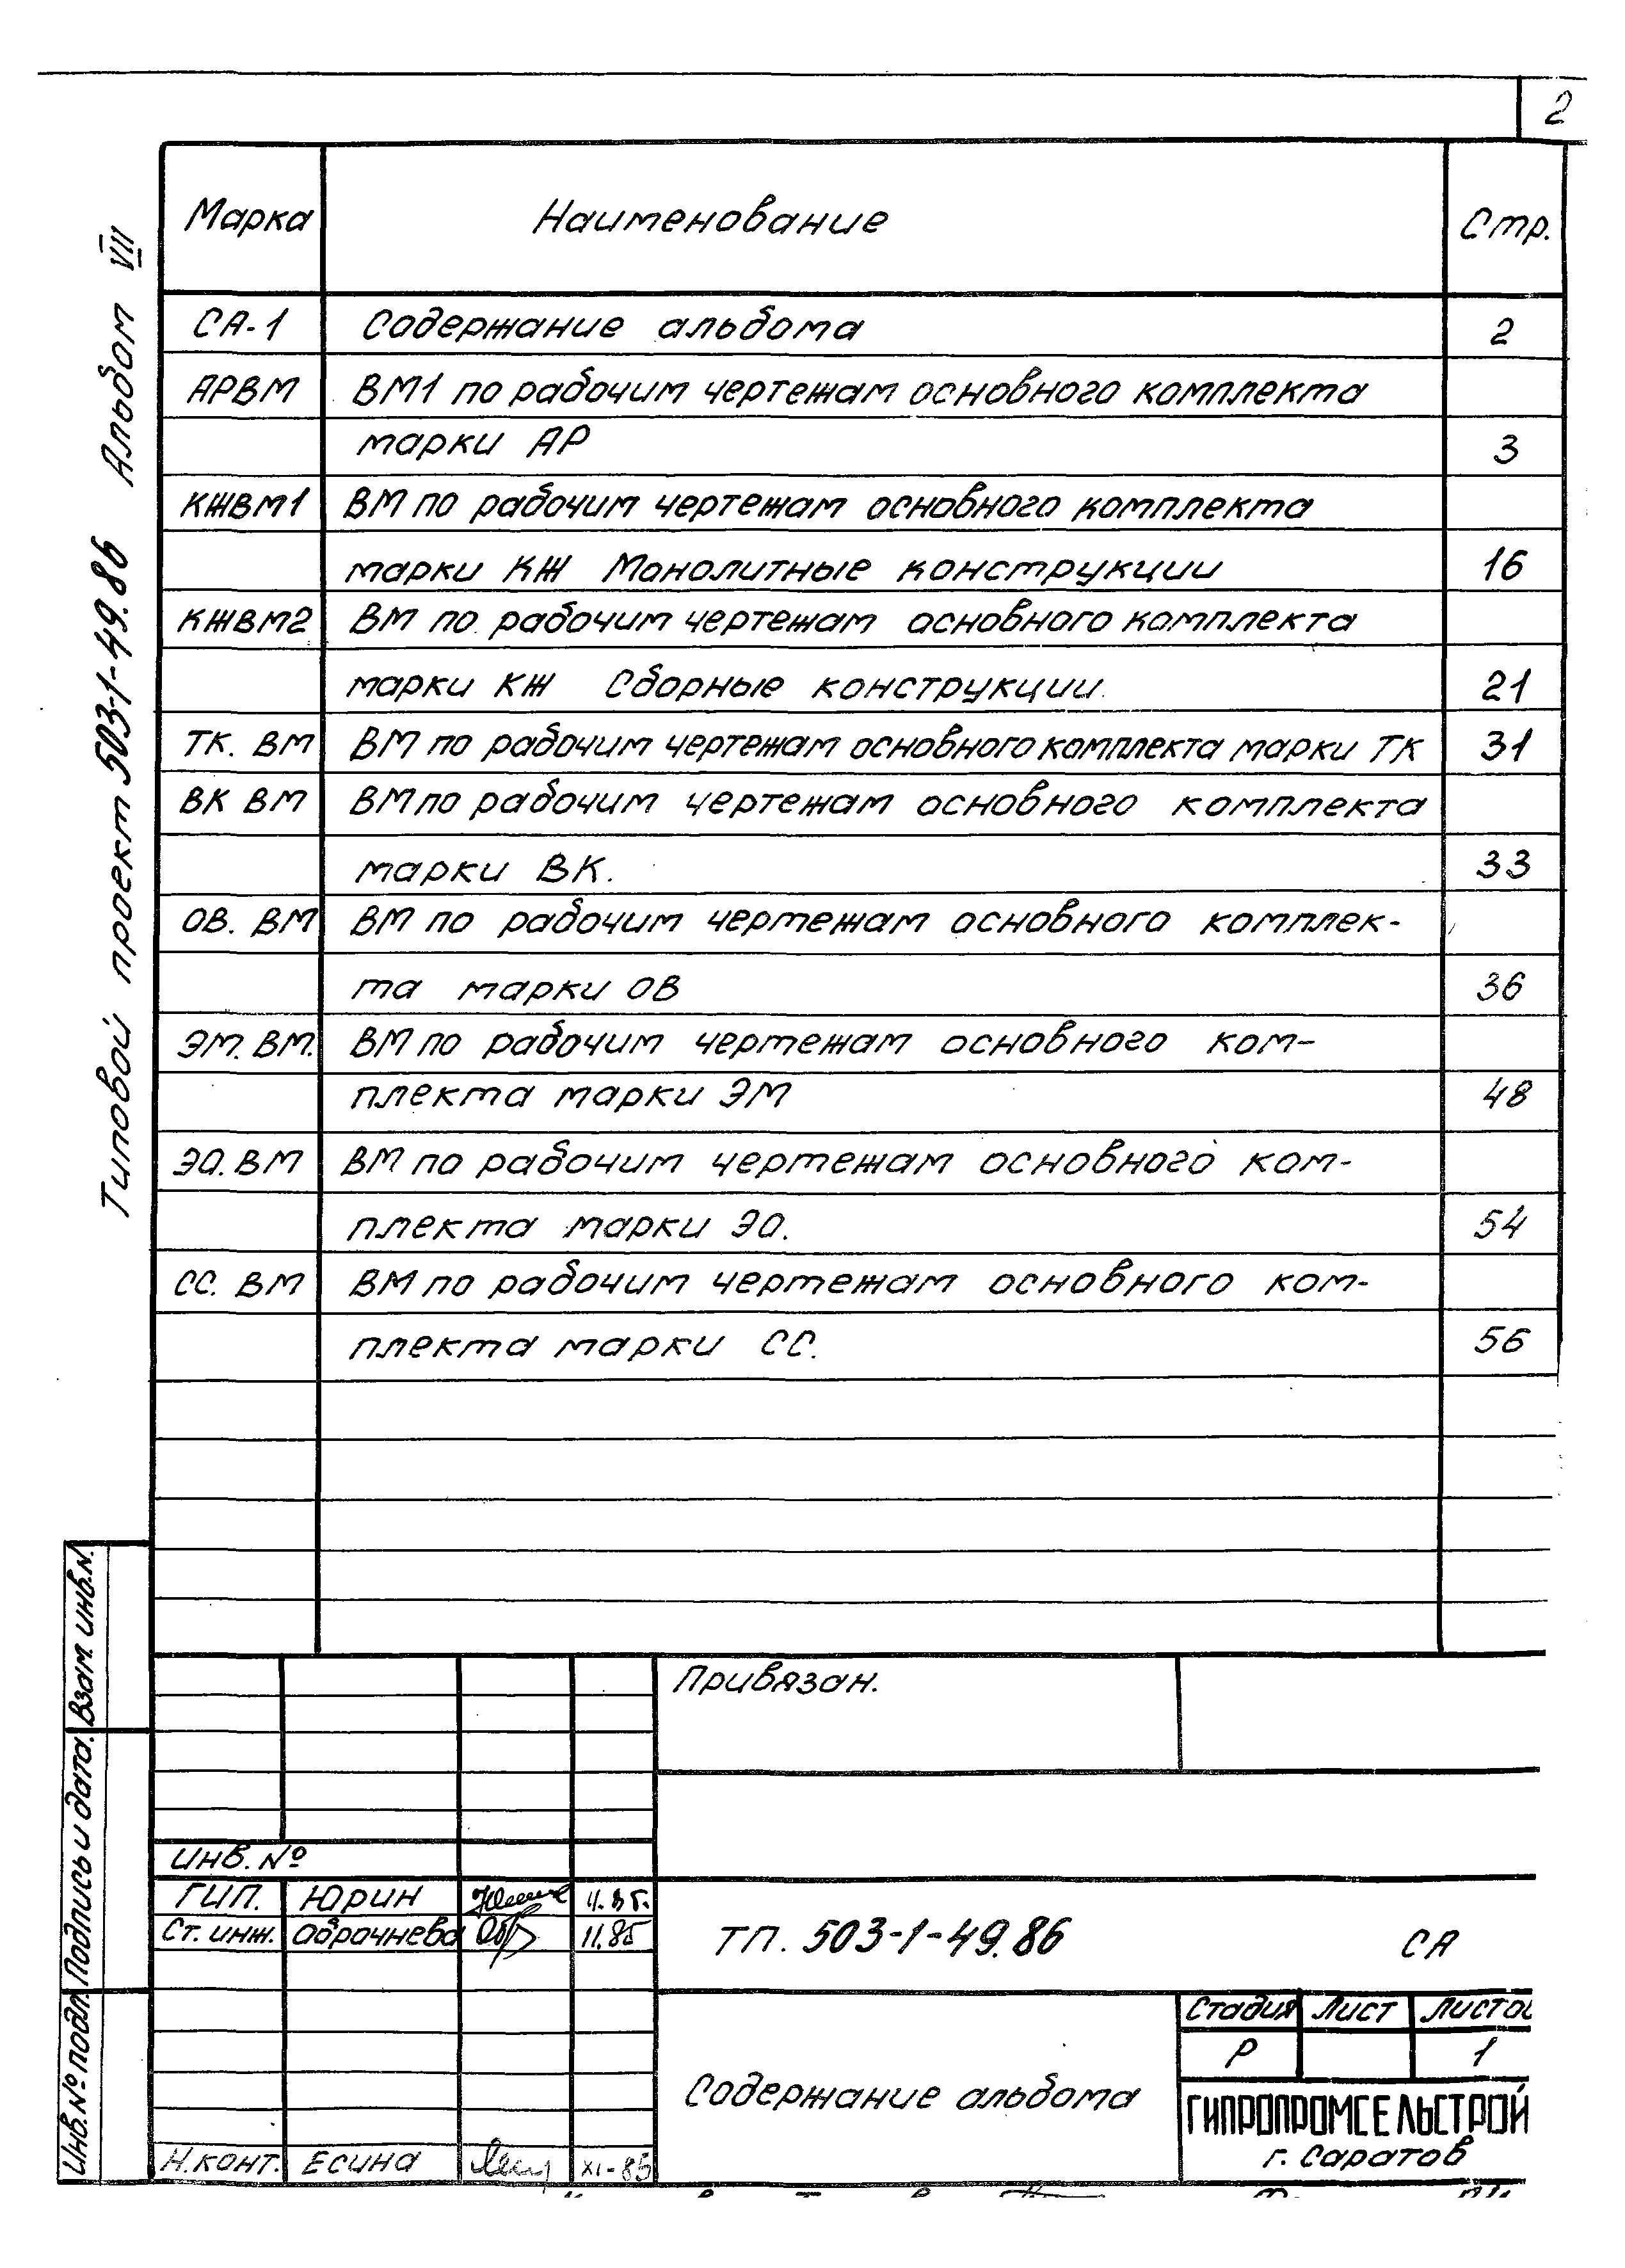 2
Типовой проект 503-1-49.86 Альбом VIII
Марка Наименование Стр.
СА-1 Содержание альбома 2
АРВМ ВМ1 по рабочим чертежам основного комплекта
марки АР 3
КЖВМ1 ВМ по рабочим чертежам основного комплекта
марки КЖ Монолитные конструкции 16
КЖВМ2 ВМ по рабочим чертежам основного комплекта
марки КЖ Сборные конструкции. 21
ТК. ВМ ВМ по рабочим чертежам основного комплекта марки ТК 31
ВК ВМ ВМ по рабочим чертежам основного комплекта
марки ВК. 33
ОВ. ВМ ВМ по рабочим чертежам основного комплек-
та марки ОВ 36
ЭМ. ВМ. ВМ по рабочим чертежам основного ком-
плекта марки ЭМ 48
ЭО. ВМ ВМ по рабочим чертежам основного ком-
плекта марки ЭО. 54
СС. ВМ ВМ по рабочим чертежам основного ком-
плекта марки СС. 56
Взам. инв.N.
Подпись и дата.
Инв.№ подл.
Привязан.
Инв. №
ГИП. Юрин
Ст. инж. Оброчнева 11.85
ТП. 503-1-49.86 СА
Стадия Лист Листов
Р 1
Содержание альбома
ГИПРОПРОМСЕЛЬСТРОЙ
г. Саратов
Н.конт. Есина XI-85